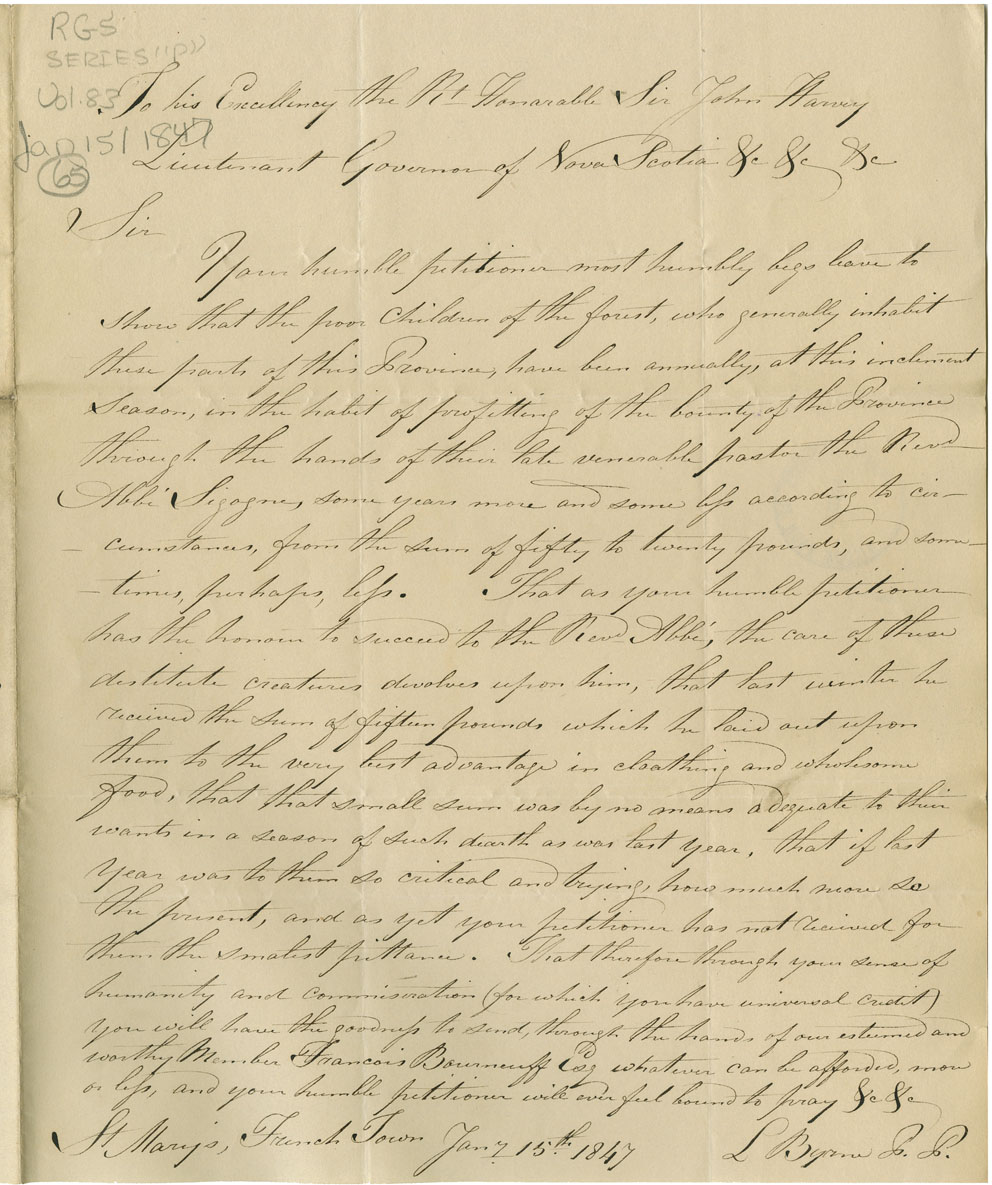 RG5
SERIES "P"
Vol. 83
Jan 15/1847
65
To his Excellency the Rt Honarable Sir John Harvey
Lieutenant Governor of Nova Scotia &c &c &c
Sir
Your humble petitioner most humbly begs leave to
show that the poor Children of the forest, who generally inhabit
these parts of this Province, have been annually, at this inclement
Season, in the habit of profitting of the bounty of the Province
through the hands of their late venerable pastor the Revd
Abbé Sigogne, some years more and some less according to cir-
- cumstances, from the sum of fifty to twenty pounds, and some-
- times, perhaps, less. That as your humble petitioner
has the honour to succeed to the Revd Abbé, the care of these
destitute creatures devolves upon him, that last winter he
received the sum of fifteen pounds which he laid out upon
them to the very best advantage in cloathing and wholesome
food, that that small sum was by no means adequate to their
wants in a season of such dearth as was last year. that if last
year was to them so critical and trying, how much more so
the present, and as yet your petitioner has not received for
them the smalest pittance. That therefore through your sense of
humanity and commiseration (for which you have universal credit)
you will have the goodness to send, through the hands of our esteemed and
worthy Member Francois Bourneuff Esq whatever can be afforded, more
or less, and your humble petitioner will ever feel bound to pray &c &c
St Mary's, French Town Jany 15th 1847 L Byrne P. P.